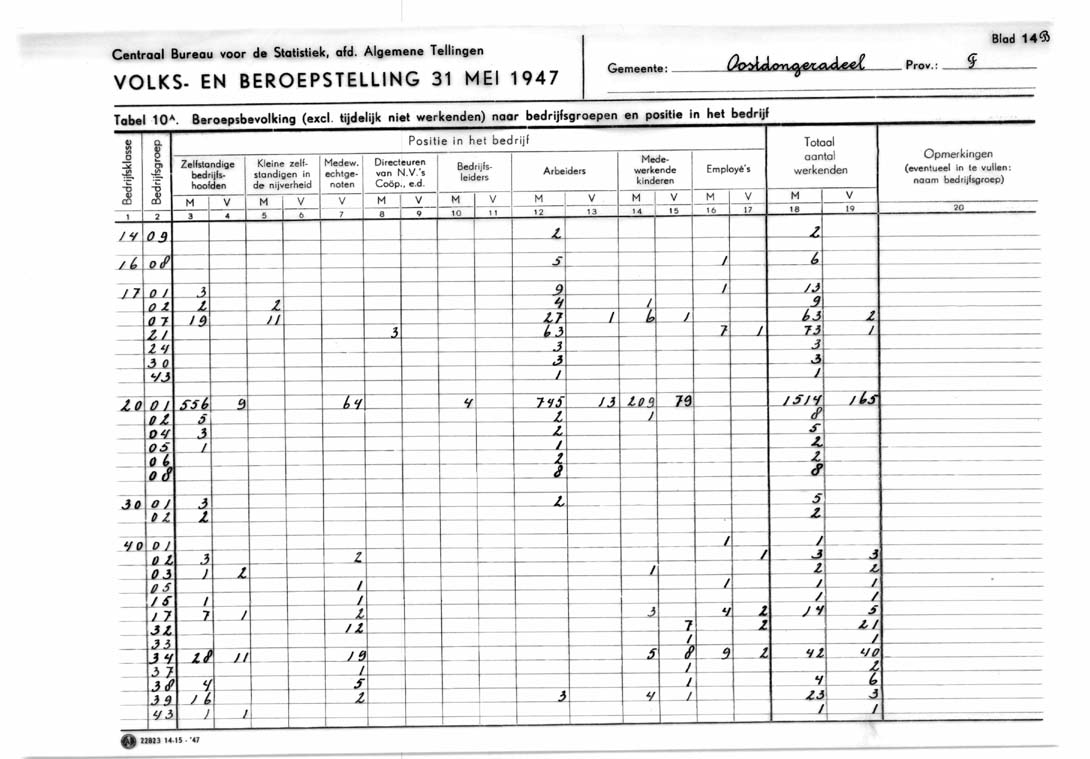 Blad 14B
Centraal Bureau voor de Statistiek, afd. Algemene Tellingen
VOLKS- EN BEROEPSTELLING 31 MEI 1947
Gemeente: Oostdongeradeel Prov.: F
Tabel 10ᴬ. Beroepsbevolking (excl. tijdelijk niet werkenden) naar bedrijfsgroepen en positie in het bedrijf
Bedrijfsklasse Bedrijfsgroep Positie in het bedrijf Totaal aantal werkenden Opmerkingen (eventueel in te vullen: naam bedrijfsgroep)
Zelfstandige bedrijfs-hoofden Kleine zelf-standigen in de nijverheid Medew. echtge-noten Directeuren van N.V.'s Coöp., e.d. Bedrijfs-leiders Arbeiders Mede-werkende kinderen Employé's
M V M V V M V M V M V M V M V M V
1 2 3 4 5 6 7 8 9 10 11 12 13 14 15 16 17 18 19 20
14 09 2 2
16 08 5 1 6
17 01 3 9 1 13
02 2 2 4 1 9
07 19 11 27 1 6 1 63 2
21 3 63 7 1 73 1
24 3 3
30 3 3
43 1 1
20 01 556 9 64 4 745 13 209 79 1514 165
02 5 2 1 8
04 3 2 5
05 1 1 2
06 2 2
08 8 8
30 01 3 2 5
02 2 2
40 01 1 1
02 3 2 1 3 3
03 1 2 1 2 2
05 1 1 1 1
15 1 1 1 1
17 7 1 2 3 4 2 14 5
32 12 7 2 21
33 1 1
34 28 11 19 5 8 9 2 42 40
37 1 1 2
38 4 5 1 4 6
39 16 2 3 4 1 23 3
43 1 1 1 1
22823 14-15 - '47